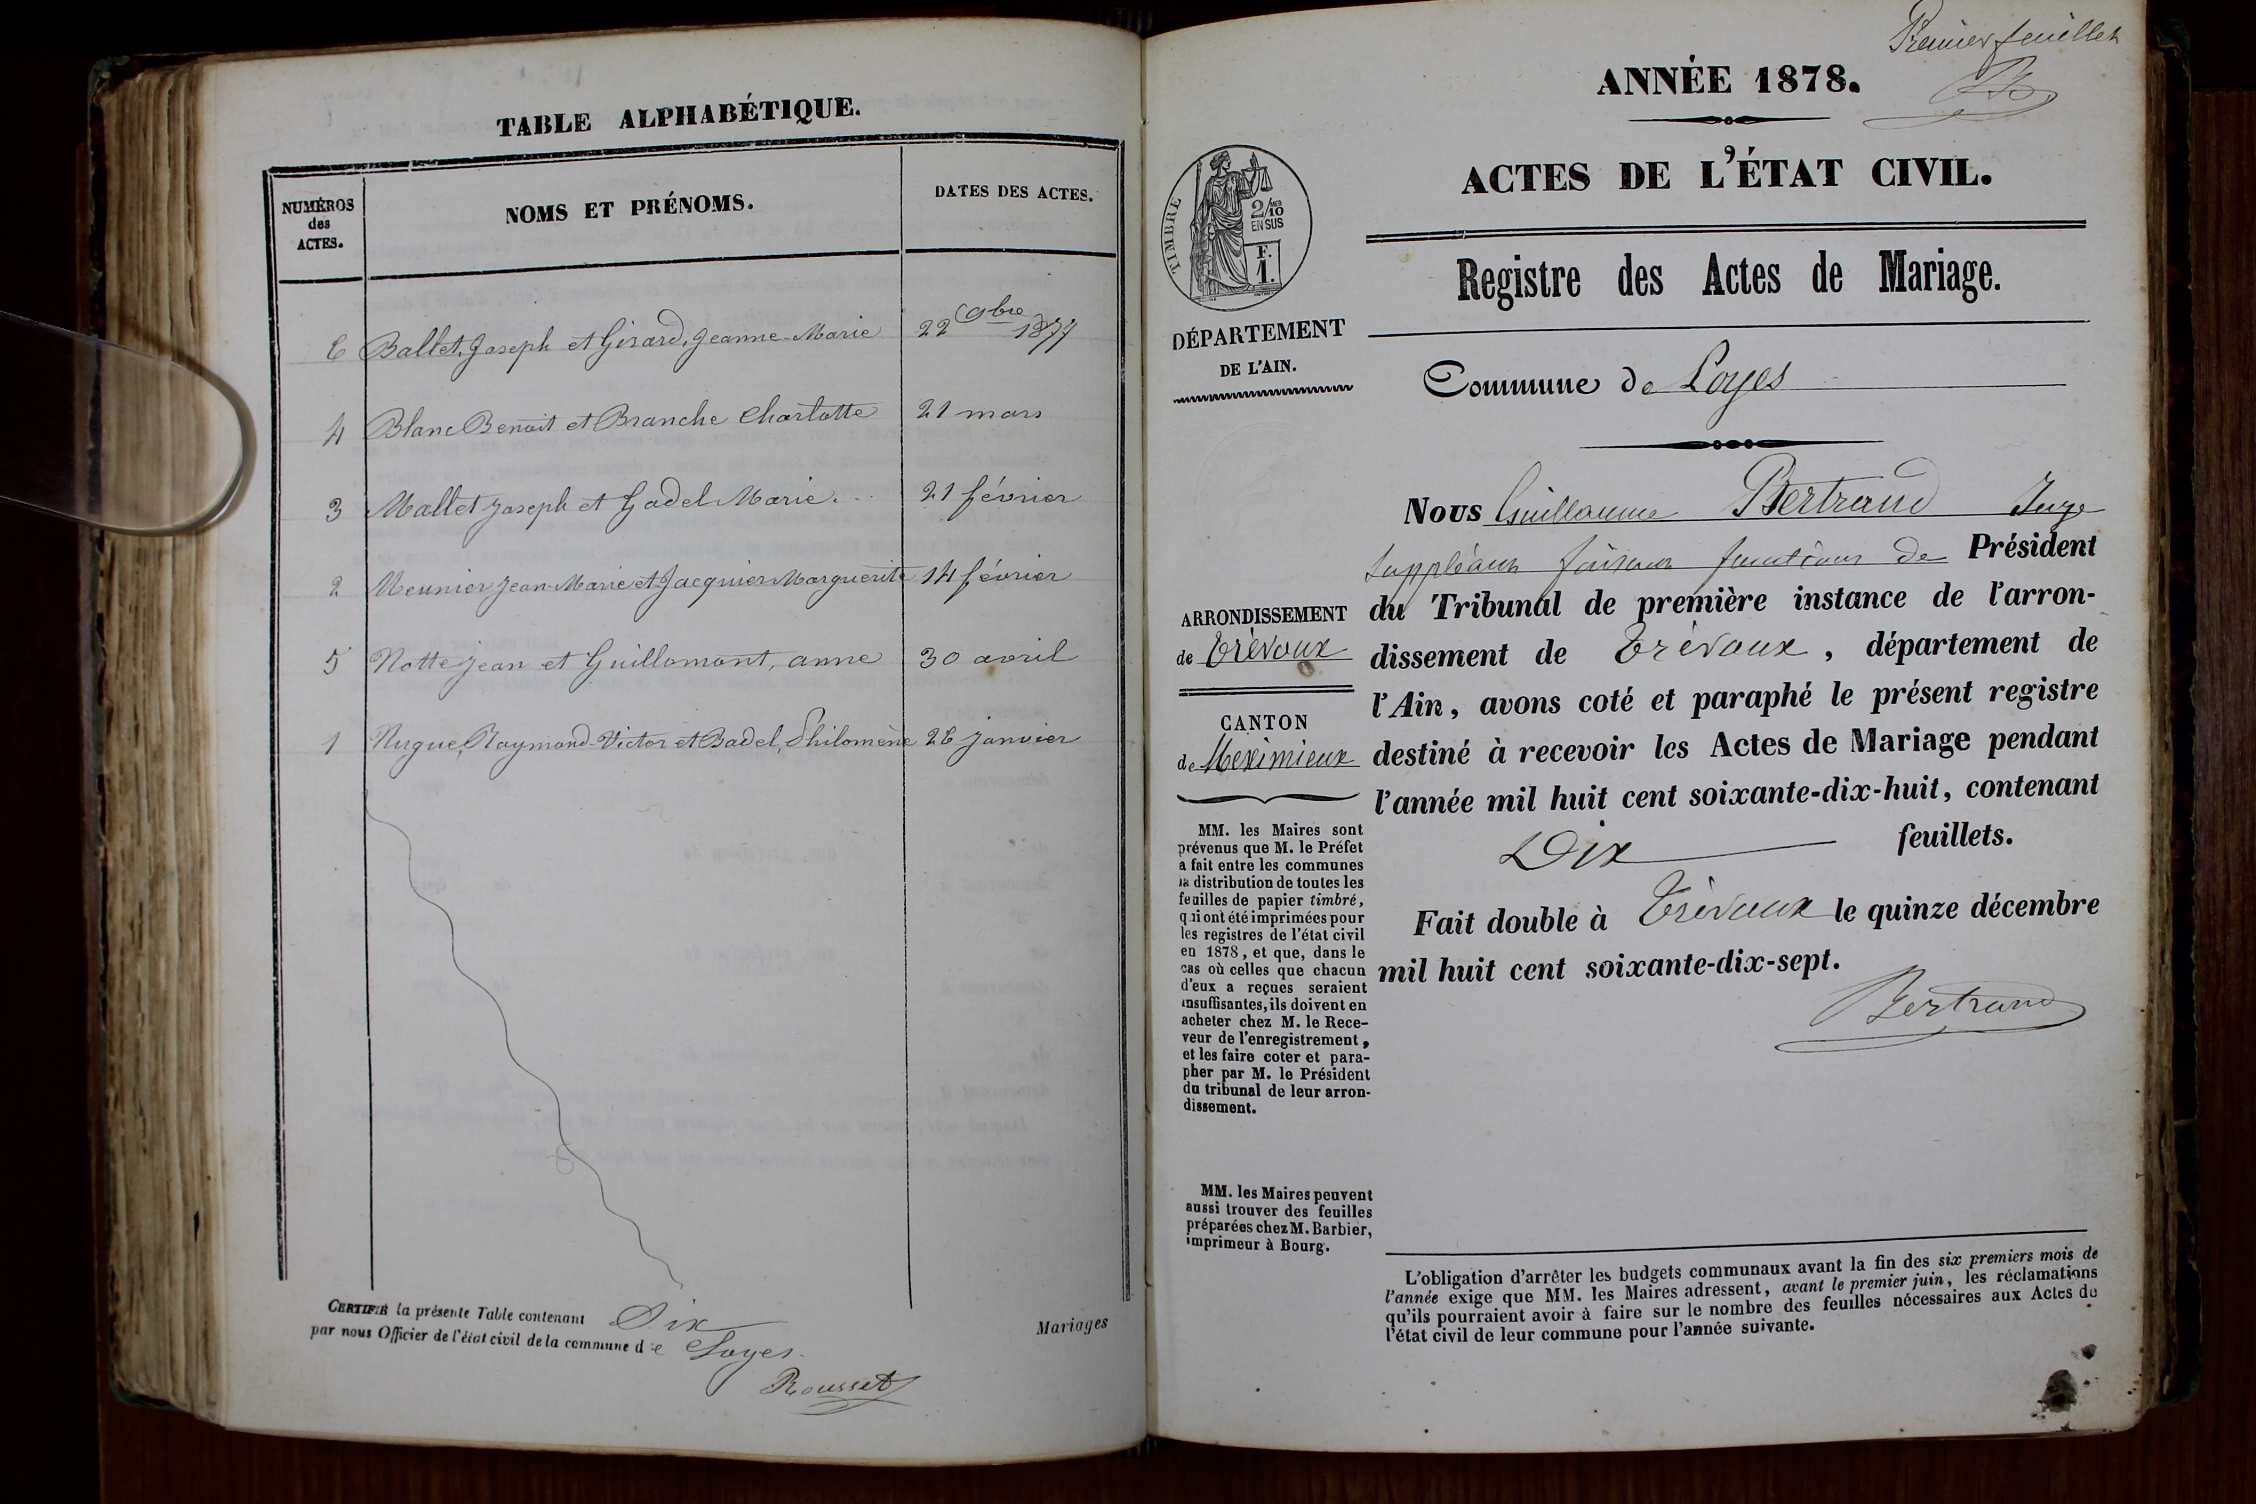 TABLE ALPHABÉTIQUE.
NUMÉROS
des
ACTES.
NOMS ET PRÉNOMS.
DATES DES ACTES.
6 Ballet, Joseph et Girard, Jeanne-Marie 22 9bre 1877
4 Blanc Benoit et Branche Charlotte 21 mars
3 Mallet Joseph et Gadel Marie. 21 février
2 Meunier Jean-Marie et Jacquier Marguerite 14 février
5 Notte Jean et Guillomont, anne 30 avril
1 Nugue, Raymond-Victor et Badel, Philomène 26 janvier
CERTIFIÉ la présente Table contenant Six Mariages
par nous Officier de l'état civil de la commune de Loyes.
Rousset
Premier feuillet
ANNÉE 1878.
ACTES DE L'ÉTAT CIVIL.
Registre des Actes de Mariage.
TIMBRE
2/10
EN SUS
F.
1.
DÉPARTEMENT
DE L'AIN.
Commune de Loyes
ARRONDISSEMENT
de Trévoux
CANTON
de Meximieux
MM. les Maires sont
prévenus que M. le Préfet
a fait entre les communes
la distribution de toutes les
feuilles de papier timbré,
qui ont été imprimées pour
les registres de l'état civil
en 1878, et que, dans le
cas où celles que chacun
d'eux a reçues seraient
insuffisantes, ils doivent en
acheter chez M. le Rece-
veur de l'enregistrement,
et les faire coter et para-
pher par M. le Président
du tribunal de leur arron-
dissement.
MM. les Maires peuvent
aussi trouver des feuilles
préparées chez M. Barbier,
imprimeur à Bourg.
Nous Guillaume Bertrand Juge
suppléant faisant fonctions de Président
du Tribunal de première instance de l'arron-
dissement de Trévoux, département de
l'Ain, avons coté et paraphé le présent registre
destiné à recevoir les Actes de Mariage pendant
l'année mil huit cent soixante-dix-huit, contenant
Dix feuillets.
Fait double à Trévoux le quinze décembre
mil huit cent soixante-dix-sept.
Bertrand
L'obligation d'arrêter les budgets communaux avant la fin des six premiers mois de
l'année exige que MM. les Maires adressent, avant le premier juin, les réclamations
qu'ils pourraient avoir à faire sur le nombre des feuilles nécessaires aux Actes de
l'état civil de leur commune pour l'année suivante.